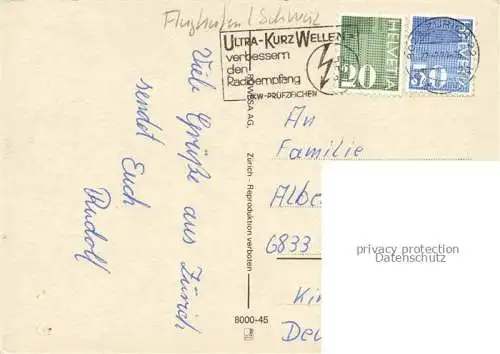 Flughafen / Schweiz
ULTRA-KURZWELLEN
verbessern
den
Radioempfang
PKW-PRÜFZEICHEN
HELVETIA
20
HELVETIA
50
Viele Grüße aus Zürich
sendet Euch
Rudolf
Zürich - Reproduktion verboten
AG.
8000-45
An
Familie
6833
privacy protection
Datenschutz